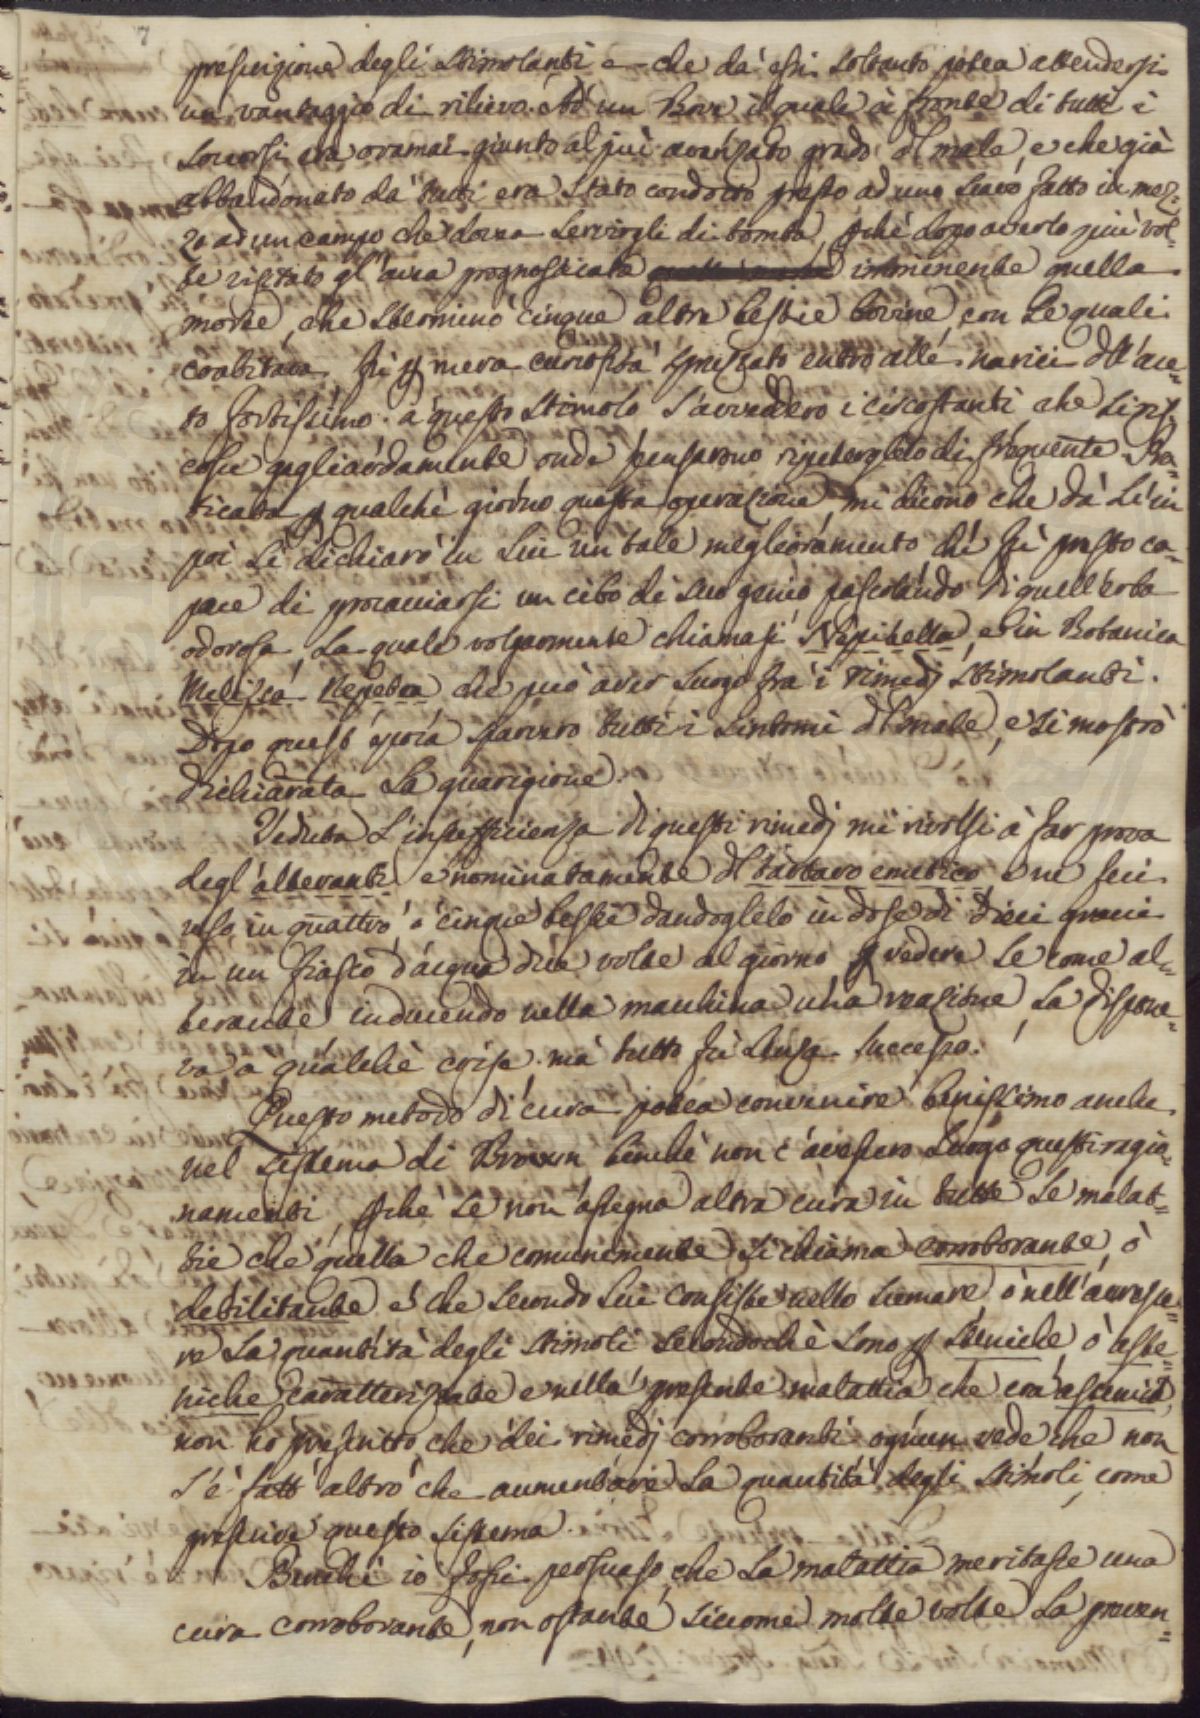 7
prescrizione degli stimolanti e che da essi soltanto potea attendersi
un vantaggio di rilievo. Ad un Bove il quale à fronte di tutti i
soccorsi era oramai giunto al più avanzato grado del male, e che già
abbandonato da tutti era stato condotto presso ad uno scavo fatto in mez=
zo ad un campo che dovea servirgli di tomba, perché dopo averlo più vol=
te visitato gl'avea prognosticata imminente quella
morte, che sterminò cinque altre bestie bovine, con le quali
coabitava fù per mera curiosità spruzzato entro alle narici dell'ace=
to fortissimo. à questo stimolo s'avviddero i circostanti che si ris=
cosse gagliardamente onde pensarono ripeterglielo di frequente. Pra=
ticata per qualche giorno questa operazione, mi dicono che da lì in
poi si dichiarò in lui un tale miglioramento che fù presto ca=
pace di procacciarsi un cibo di suo genio pascolando di quell'erba
odorosa, la quale volgarmente chiamasi Nepitella, e in Botanica
Melissa Nepeta che può aver luogo frà i rimedj stimolanti.
Dopo quest'epoca sparvero tutti i sintomi del male, e si mostrò
dichiarata la guarigione.
Veduta l'insufficienza di questi rimedj mi rivolsi à far prova
degl'alteranti e nominatamente del tartaro emetico e ne feci
uso in quattro ò cinque bestie dandoglielo in dose di dieci grani
in un fiasco d'acqua due volte al giorno per vedere se come al=
terante inducendo nella macchina una reazione, la dispone=
va a qualche crise ma tutto fù senza successo.
Questo metodo di cura potea convenire benissimo anche
nel sistema di Brown benchè non c'avessero luogo questi ragio=
namenti, perché se non assegna altra cura in tutte le malat=
tie che quella che comunemente si chiama corroborante, ò
debilitante e che secondo lui consiste nello scemare, ò nell'accresce=
re la quantità degli stimoli secondochè sono per steniche, ò aste=
niche caratterizzate e nella presente malattia che era astenica,
non hò prescritto che dei rimedj corroboranti ognun vede che non
s'è fatt'altro che aumentare la quantità degli stimoli, come
prescrive questo sistema.
Benchè io fossi persuaso, che la malattia meritasse una
cura corroborante, non ostante siccome molte volte la preven=